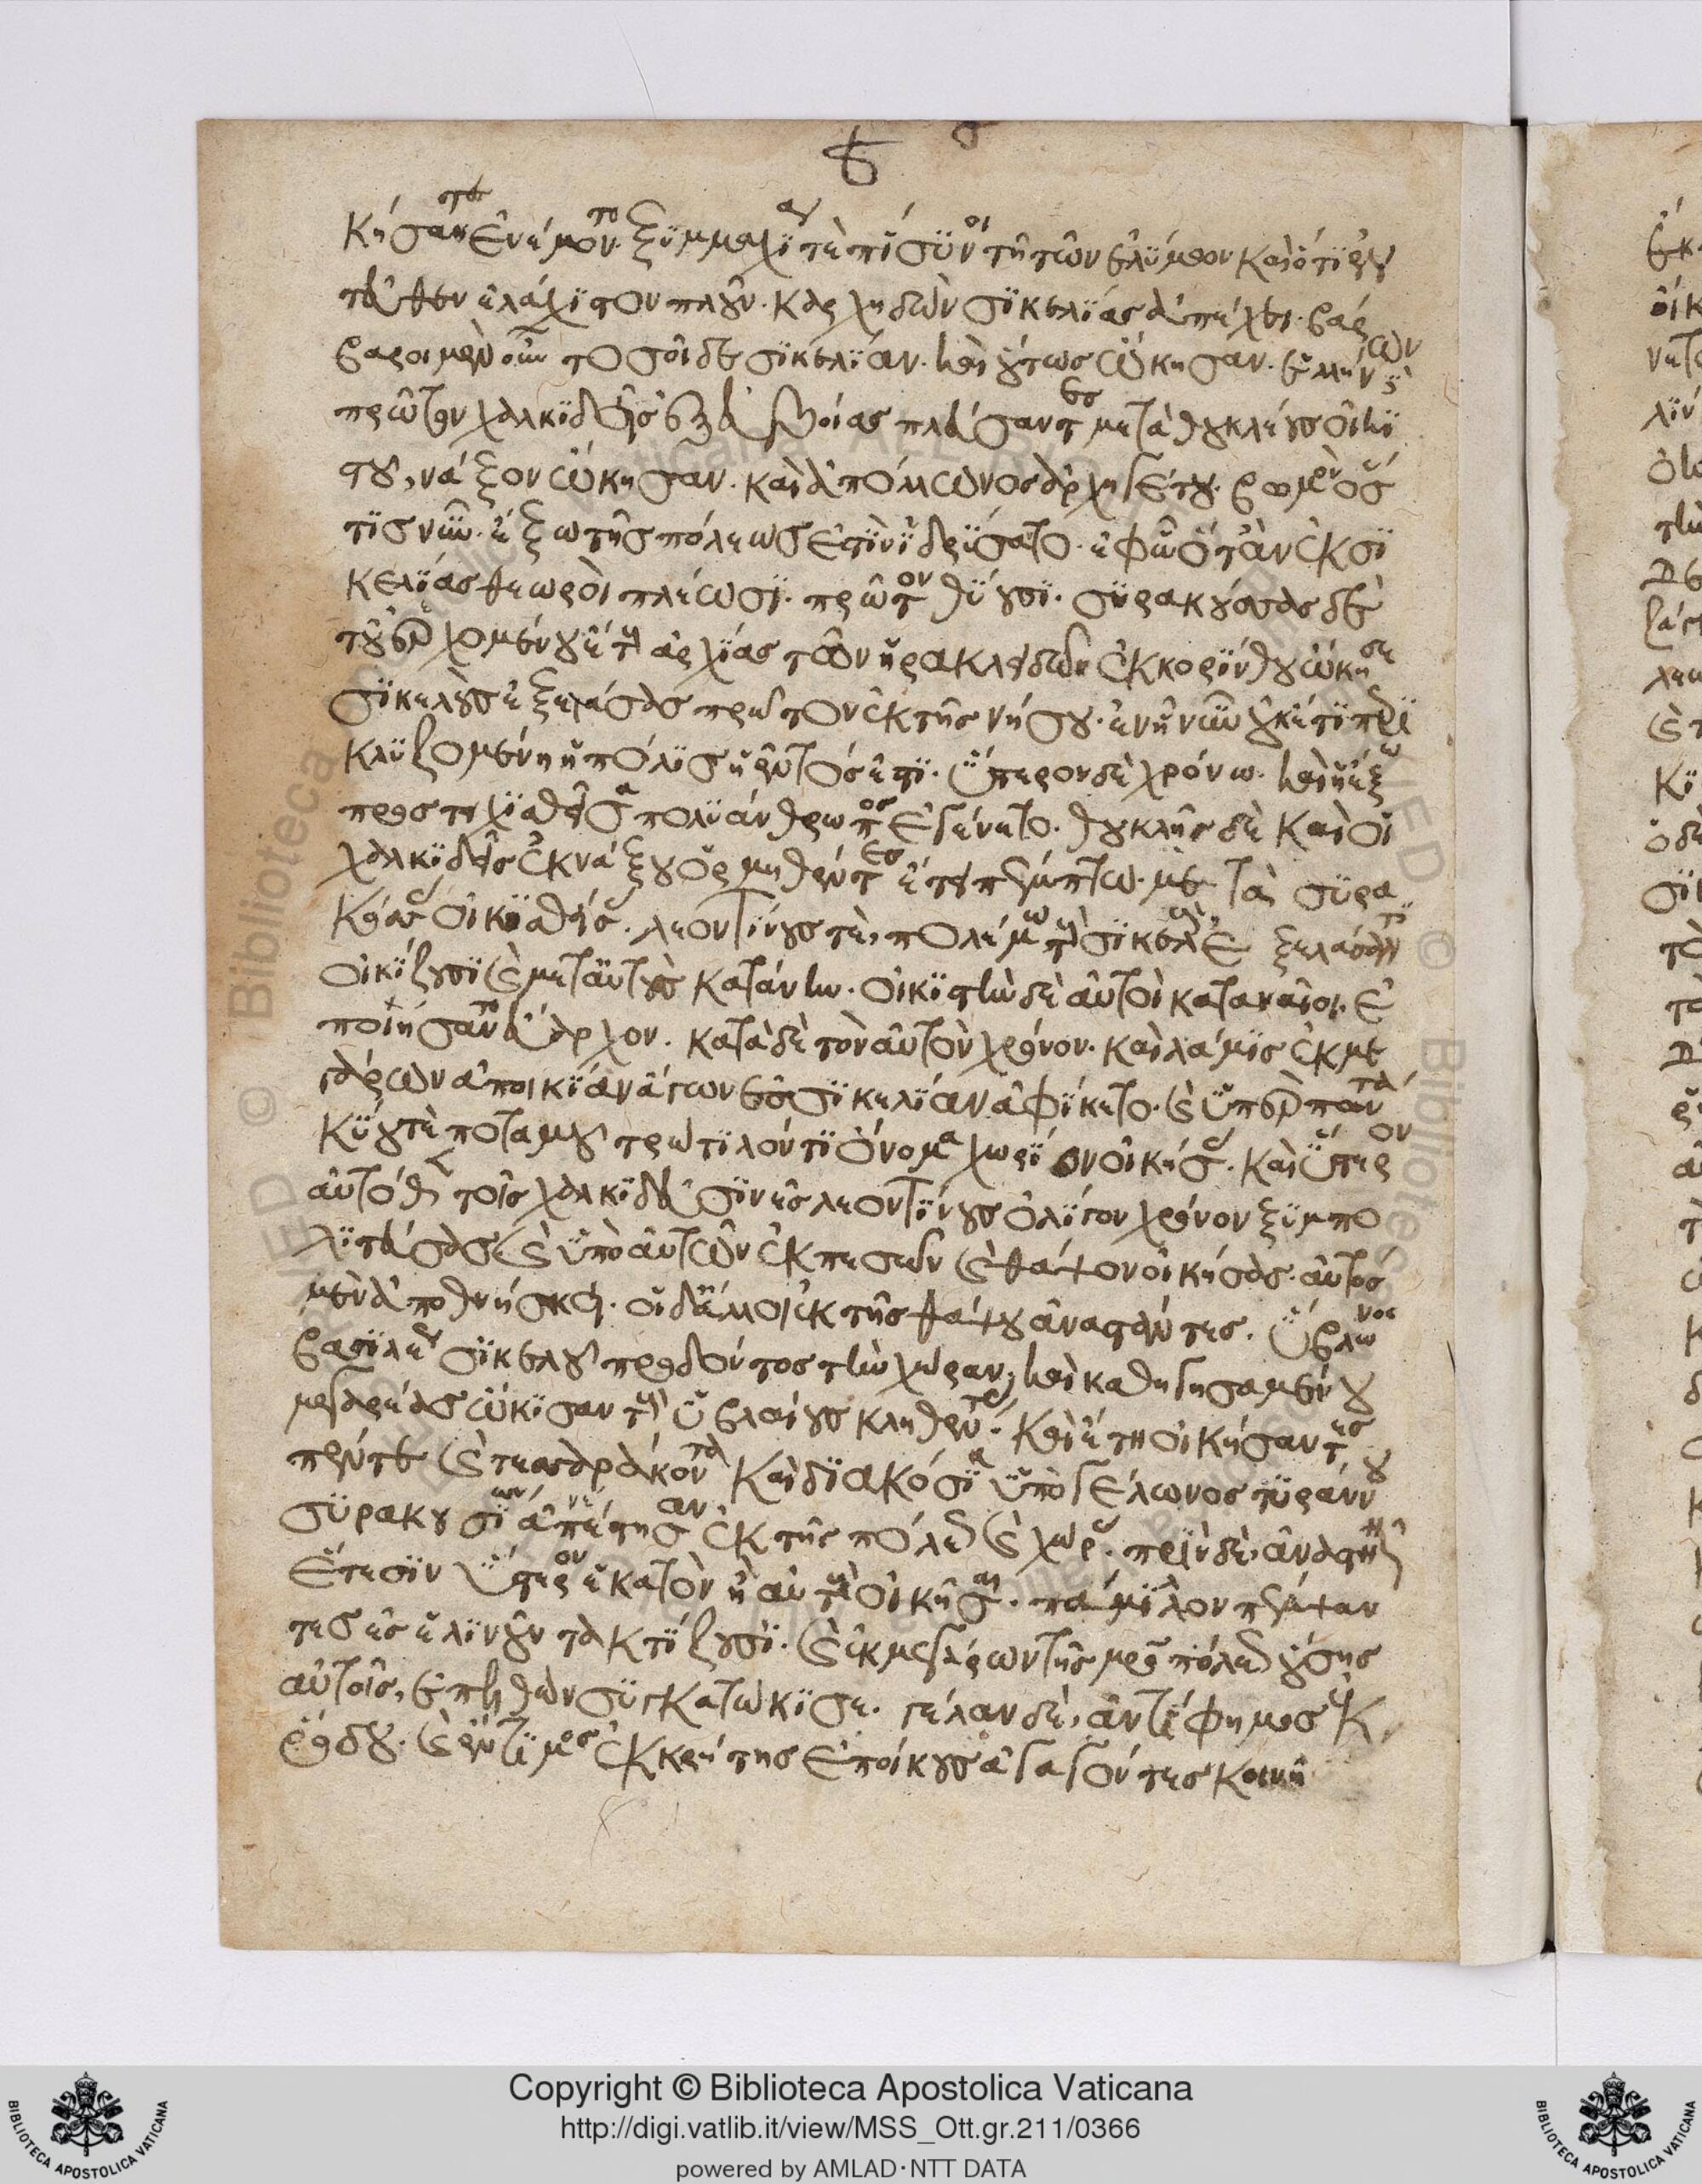 κήσαντες ἐνέμοντο ξυμμαχία τε πίσυνοι τῆ τῶν ἐλύμων καὶ ὅτι ἐν
τεῦθεν ἐλάχιστον πλοῦν καρχηδὼν σικελίας ἀπέχει. βάρ
βαροι μὲν οὖν τοσοίδε σικελίαν καὶ οὕτως ᾤκησαν. ἑλλήνων δὲ
πρῶτον χαλκιδεῖς ἐξ εὐβοίας πλεύσαντες μετὰ θουκλέους οἰκι
στοῦ, νάξον ᾤκησαν. καὶ ἀπόλλωνος ἀρχηγέτου βωμὸν ὅσ
τις νῦν ἔξω τῆς πόλεως ἐστὶν ἱδρύσατο. ἐφ ᾧ ὅταν ἐκ σι
κελίας θεωροὶ πλέωσι. πρῶτον θύουσι. συρακούσας δὲ
τοῦ ἐχομένου ἔτους ἀρχίας τῶν ἡρακλειδῶν ἐκ κορίνθου ᾤκησε
σικελοὺς ἐξελάσας πρῶτον ἐκ τῆς νήσου. ἐν ἧ νῦν οὐκέτι περι
κλυζομένη ἡ πόλις ἡ ἐντός ἐστι. ὕστερον δὲ χρόνω καὶ ἡ ἔξω
προστειχισθεῖσα πολυάνθρωπος ἐγένετο. θουκλῆς δὲ καὶ οἱ
χαλκιδεῖς ἐκ νάξου ὁρμηθέντες ἔτει πέμπτω μετὰ συρα
κούσας οἰκισθείσας. λεοντίνους τε, πολέμω τοὺς σικελοὺς ἐξελάσαντες
οἰκίζουσι καὶ μετ αὐτοὺς κατάνην. οἰκιστὴν δὲ αὐτοὶ καταναῖοι ἐ
ποιήσαντο εὔαρχον. κατὰ δὲ τὸν αὐτὸν χρόνον καὶ λάμις ἐκ με
γάρων ἀποικίαν ἄγων ἐς σικελίαν ἀφίκετο. καὶ ὑπὲρ παντα
κύου τε ποταμοῦ τρώτιλόν τι ὄνομα χωρίον οἰκίσας. καὶ ὕστερον
αὐτόθεν τοῖς χαλκιδεῦσιν ἐς λεοντίνους ὀλίγον χρόνον ξυμπο
λιτεύσας καὶ ὑπὸ αὐτῶν ἐκπεσὼν καὶ θάψον οἰκήσας. αὐτὸς
μὲν ἀποθνήσκει. οἱ δ ἄλλοι ἐκ τῆς θάψου ἀναστάντες. ὕβλωνος
βασιλέως σικελοῦ προδόντος τὴν χώραν, καὶ καθηγησαμένου
μεγαρέας ᾤκισαν τοὺς ὑβλαίους κληθέντας. καὶ ἔτη οἰκήσαντες
πέντε καὶ τεσσαράκοντα καὶ διακόσια ὑπὸ γέλωνος τυράννου
συρακουσίων ἀνέστησαν ἐκ τῆς πόλεως καὶ χώρας. πρὶν δὲ ἀναστῆναι
ἔτεσιν ὕστερον ἑκατὸν ἢ αὐτοὺς οἰκῆσαι. πάμιλον πέμψαν
τες ἐς σελινοῦντα κτίζουσι. καὶ ἐκ μεγάρων τῆς μητροπόλεως οὔσης
αὐτοῖς, ἐπελθὼν συγκατῴκισε. γέλαν δὲ, ἀντίφημος ἐκ
ῥόδου. καὶ ἔντιμος ἐκ κρήτης ἐποίκους ἀγαγόντες κοινῆ
Copyright © Biblioteca Apostolica Vaticana
http://digi.vatlib.it/view/MSS_Ott.gr.211/0366
powered by AMLAD·NTT DATA